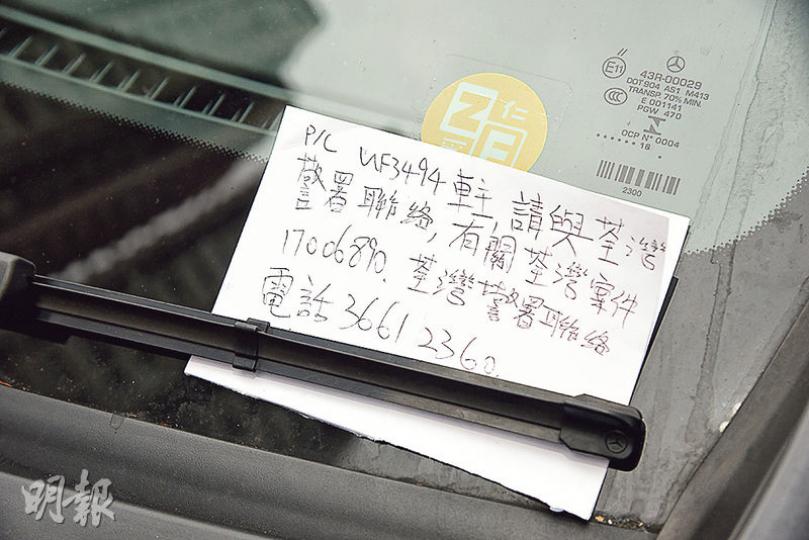 P/C UF3494 車主, 請與荃灣
警署聯絡, 有關荃灣案件
17006890. 荃灣警署聯絡
電話 3661 2360.
E11
43R-00029
DOT904 AS1 M413
TRANSP. 70% MIN.
CCC
E 001141
PGW 470
OCP N° 0004
16
2300
仁
明報